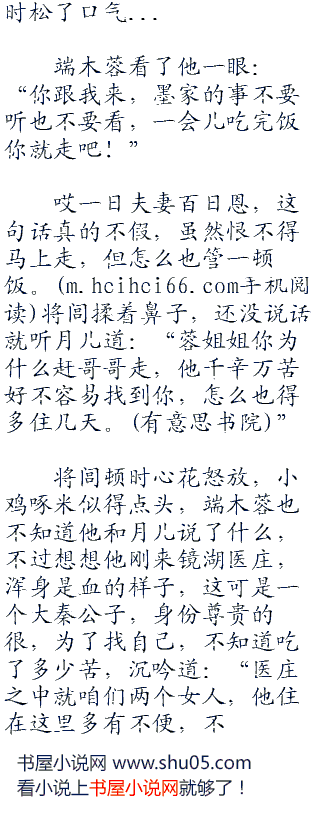 时松了口气...
端木蓉看了他一眼：
“你跟我来，墨家的事不要
听也不要看，一会儿吃完饭
你就走吧！”
哎一日夫妻百日恩，这
句话真的不假，虽然恨不得
马上走，但怎么也管一顿
饭。(m.hcihci66.com手机阅
读)将闾揉着鼻子，还没说话
就听月儿道：“蓉姐姐你为
什么赶哥哥走，他千辛万苦
好不容易找到你，怎么也得
多住几天。(有意思书院)”
将闾顿时心花怒放，小
鸡啄米似得点头，端木蓉也
不知道他和月儿说了什么，
不过想想他刚来镜湖医庄，
浑身是血的样子，这可是一
个大秦公子，身份尊贵的
很，为了找自己，不知道吃
了多少苦，沉吟道：“医庄
之中就咱们两个女人，他住
在这里多有不便，不
书屋小说网 www.shu05.com
看小说上书屋小说网就够了！